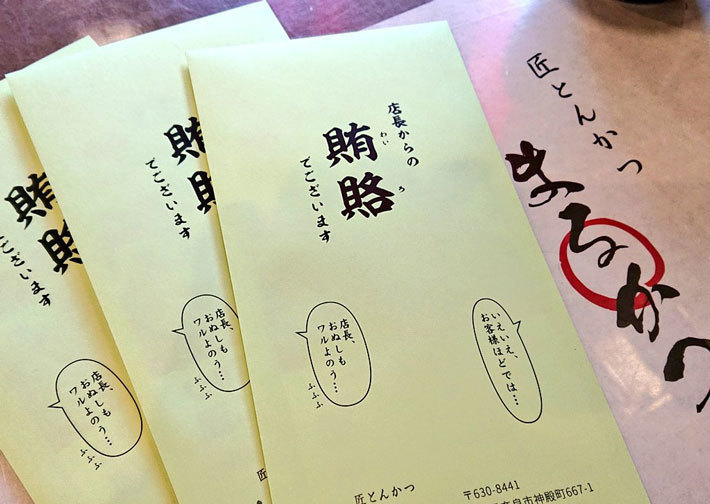 店長からの
賄賂
わいろ
でございます
店長、
おぬしも
ワルよのう…
ふふふ
いえいえ、
お客様ほどでは…
匠とんかつ
〒630-8441
市神殿町667-1
賄賂
でございます
店長、
おぬしも
ワルよのう…
ふふふ
匠
賄賂
でございます
店長、
おぬしも
ワルよのう…
ふふふ
匠とんかつ
まるかつ